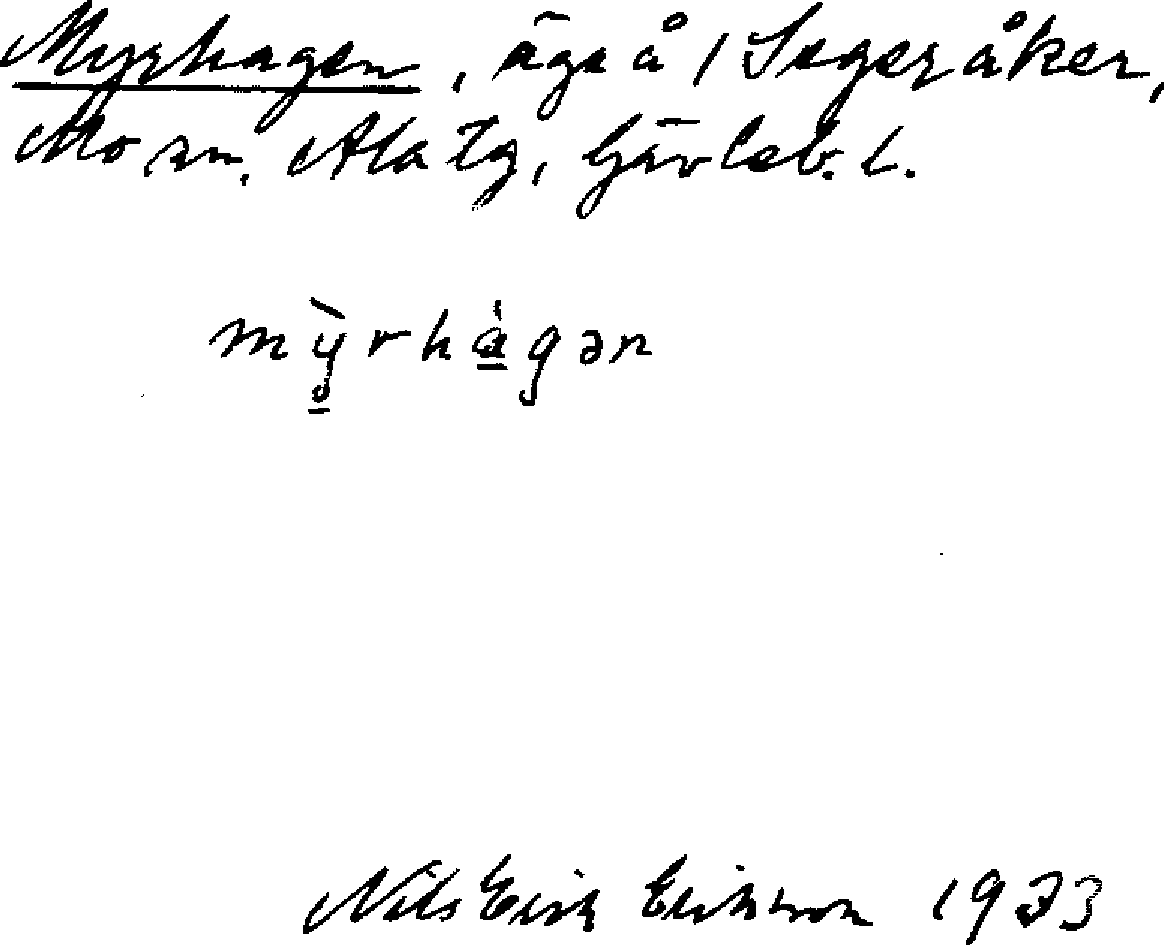 Myrhagen, äga å 1 Segeråker,
Mo sn. Ala tg, Gävleb. l.
mỳrhàgən
Nils Erik Eriksson 1933